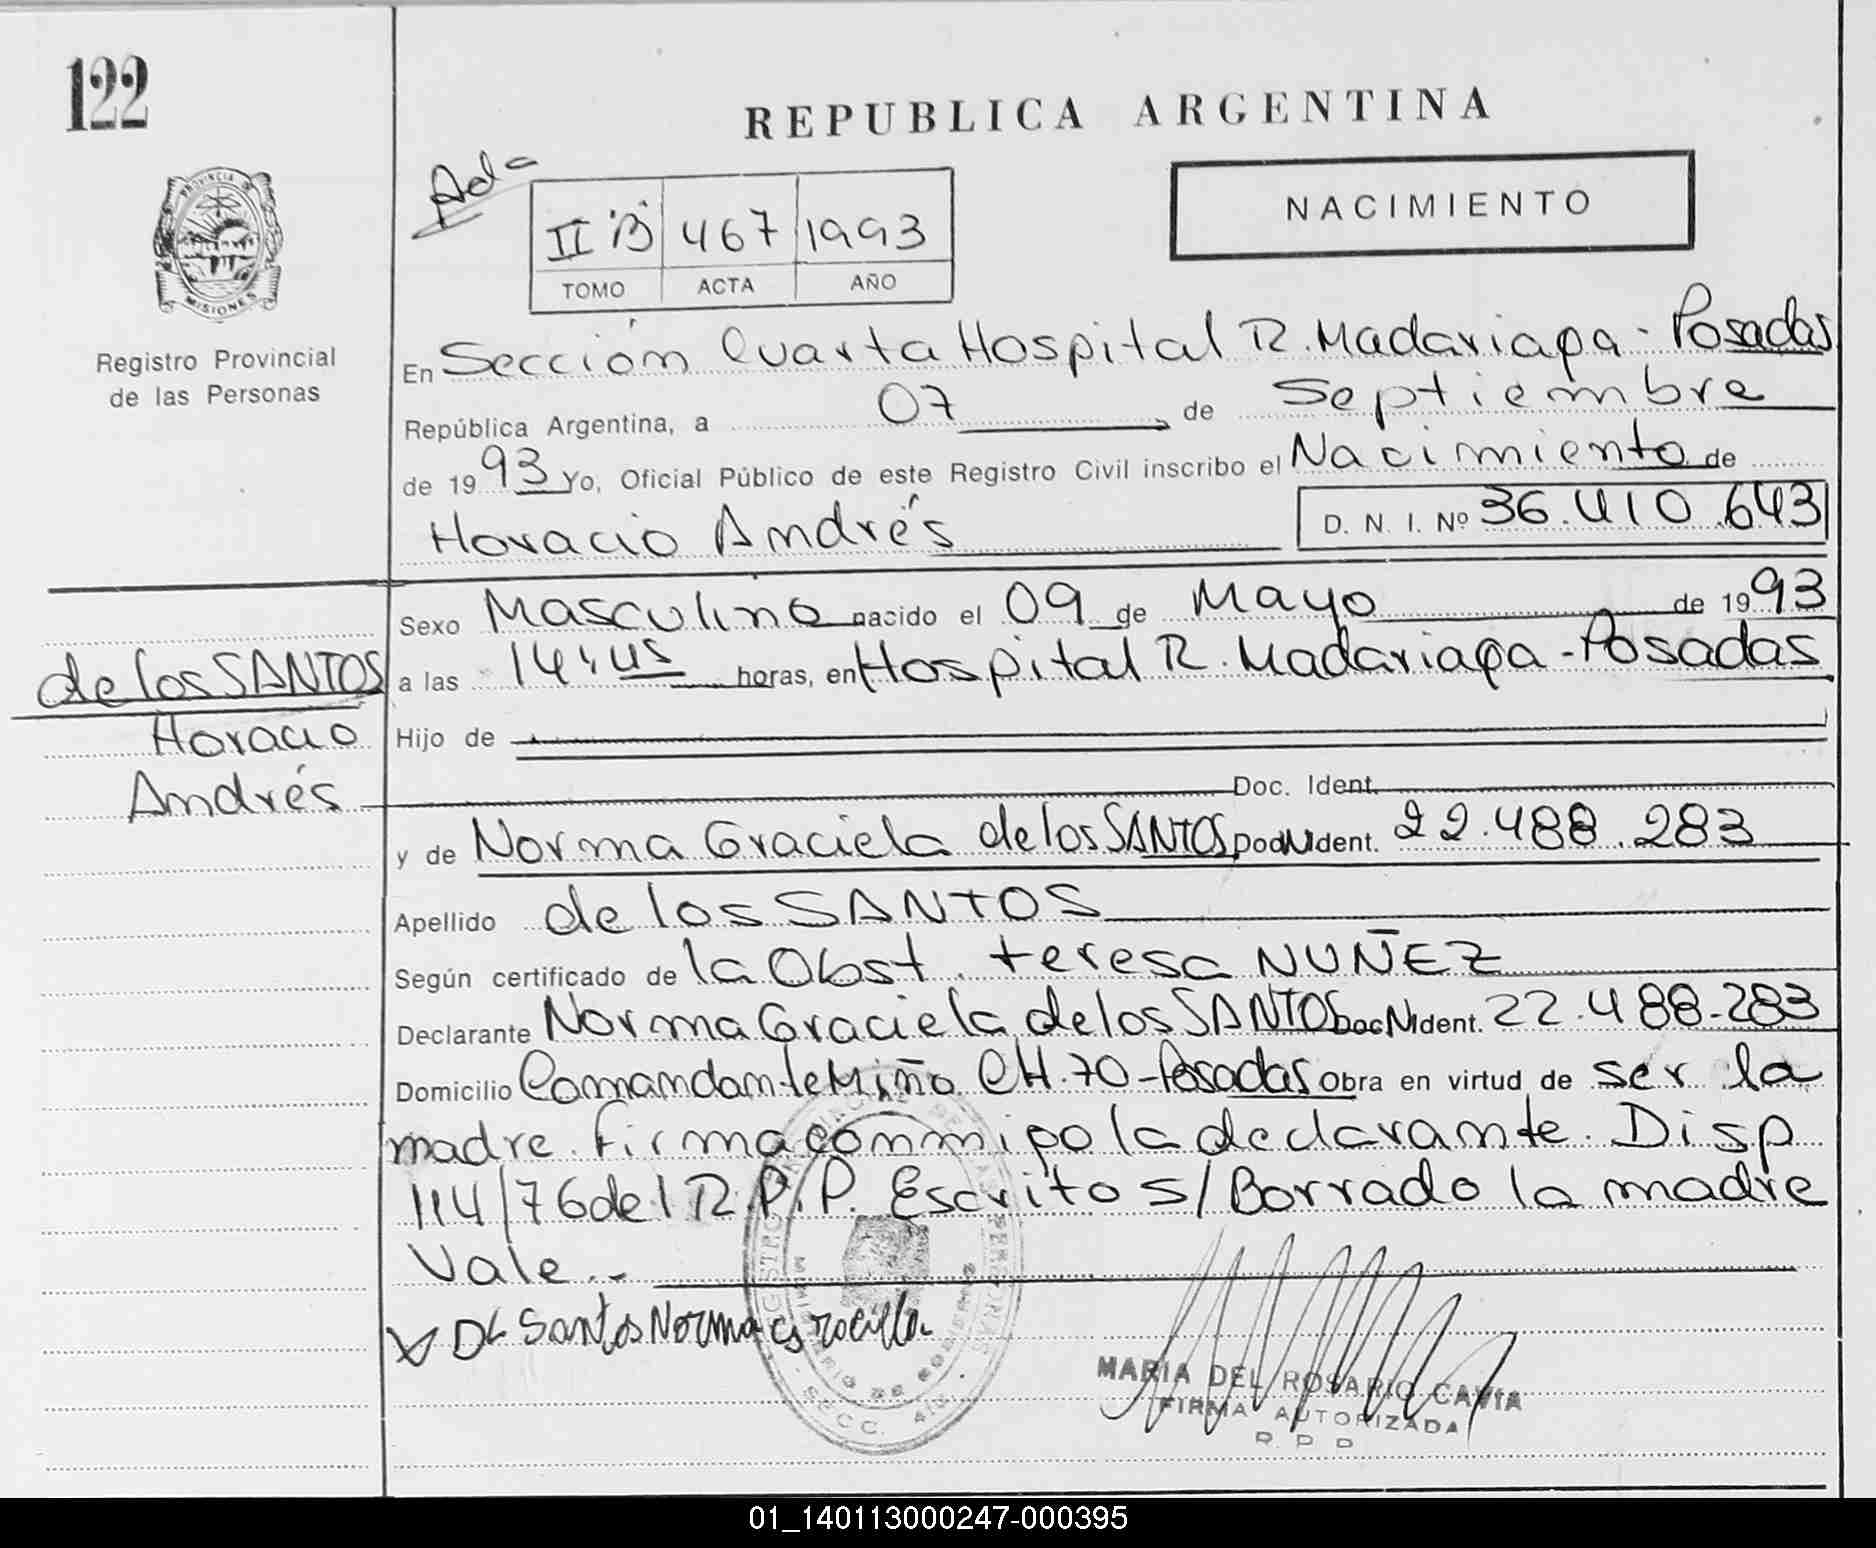 122
REPUBLICA ARGENTINA
Ada
II "B" 467 1993
TOMO ACTA AÑO
NACIMIENTO
PROVINCIA DE
MISIONES
Registro Provincial
de las Personas
En Sección Cuarta Hospital R. Madariaga - Posadas
República Argentina, a 07 de Septiembre
de 1993 Yo, Oficial Público de este Registro Civil inscribo el Nacimiento de
Horacio Andrés D. N. I. Nº 36.410.643
Sexo Masculino nacido el 09 de Mayo de 1993
de los SANTOS
a las 14:45 horas, en Hospital R. Madariaga - Posadas
Horacio
Hijo de
Andrés
Doc. Ident.
y de Norma Graciela de los SANTOS Doc. Ident. 22.488.283
Apellido de los SANTOS
Según certificado de la Obst. Teresa NUÑEZ
Declarante Norma Graciela de los SANTOS Doc. Ident. 22.488.283
Domicilio Comandante Miño CH. 70 - Posadas Obra en virtud de ser la
madre. Firma conmigo la declarante. Disp
114/76 del R.P.P. Escrito s/ Borrado la madre
Vale..-
De Santos Norma
MARIA DEL ROSARIO CAVIA
FIRMA AUTORIZADA
R P P
01_140113000247-000395